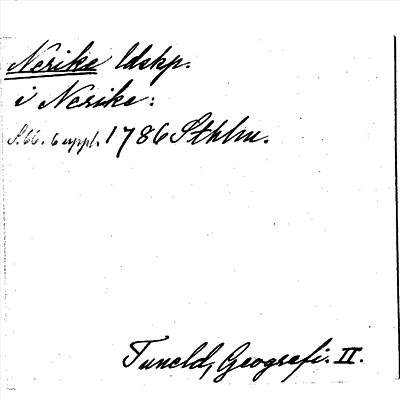 Nerike ldskp.
i Nerike:
S.66. 6 uppl. 1786 Sthlm.
Tuneld, Geografi. II.